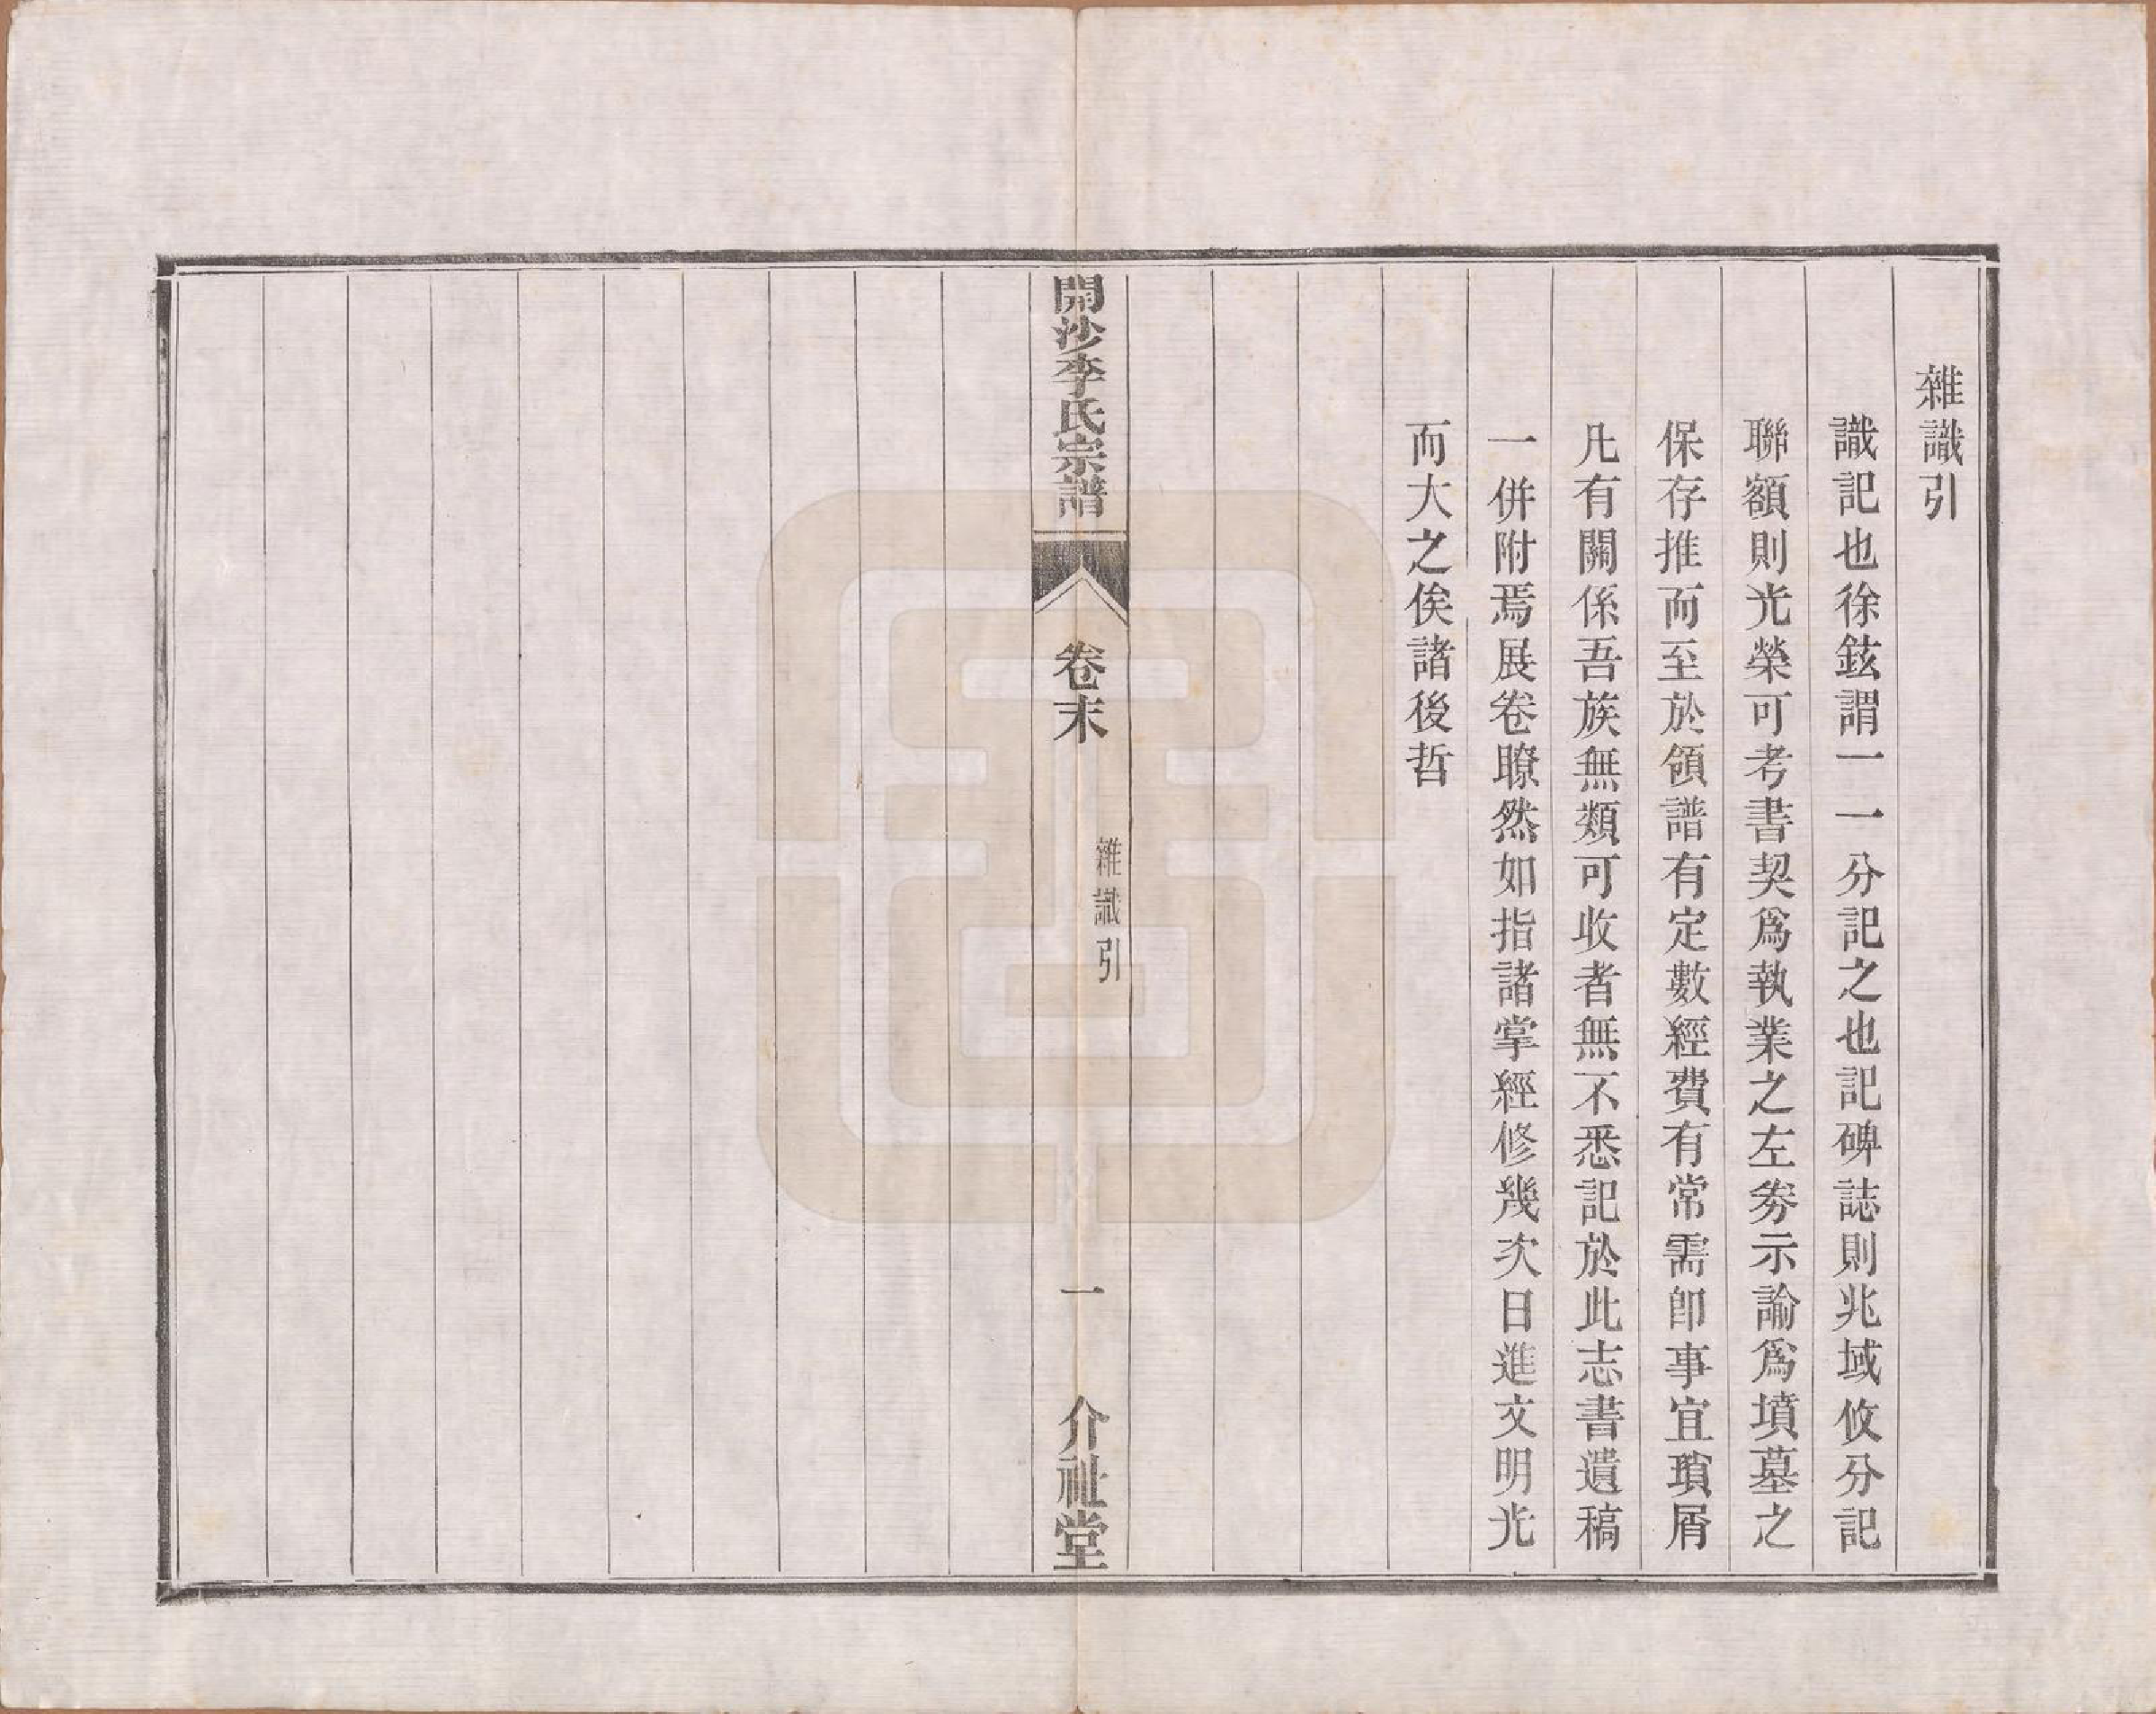 雜識引
識記也徐鉉謂一一分記之也記碑誌則兆域攸分記
聯額則光榮可考書契爲執業之左劵示諭爲墳墓之
保存推而至於領譜有定數經費有常需卽事宜瑣屑
凡有關係吾族無類可收者無不悉記於此志書遺稿
一併附焉展卷瞭然如指諸掌經修幾次日進文明光
而大之俟諸後哲
開沙李氏宗譜
卷末
雜識引
一
介祉堂